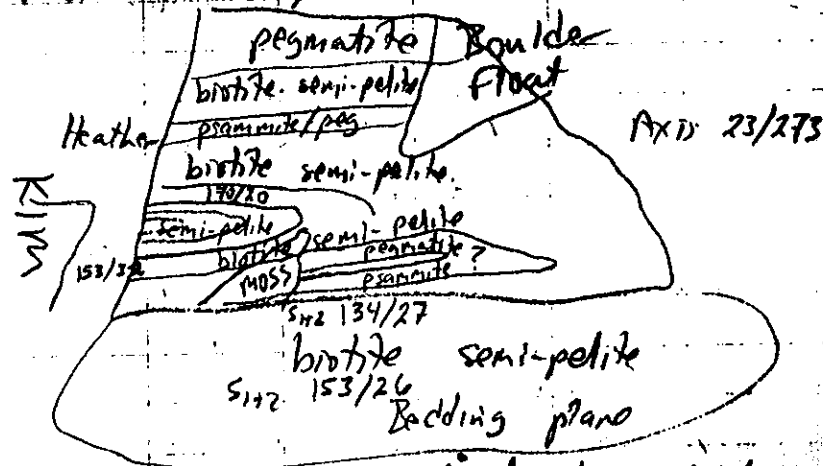 pegmatite Boulder
biotite semi-pelite Float
psammite/peg
Heather
Axis 23/273
biotite semi-pelite.
170/20
semi-pelite
semi-pelite
biotite
pegmatite
?
153/32
MOSS
psammite
S1+2 134/27
biotite semi-pelite
S1+2 153/26
Bedding plane